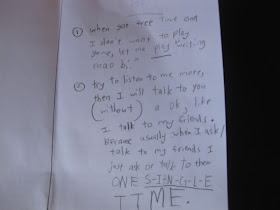 ① When got free time and
I don't want to play
game, let me play "writing
① try to listen to me more,
then I will talk to you
(without) a ok, like
I talk to my friends.
Because usually when I ask/
talk to my friends I
just ask or talk to them
ONE S-I-N-G-L-E
TIME.